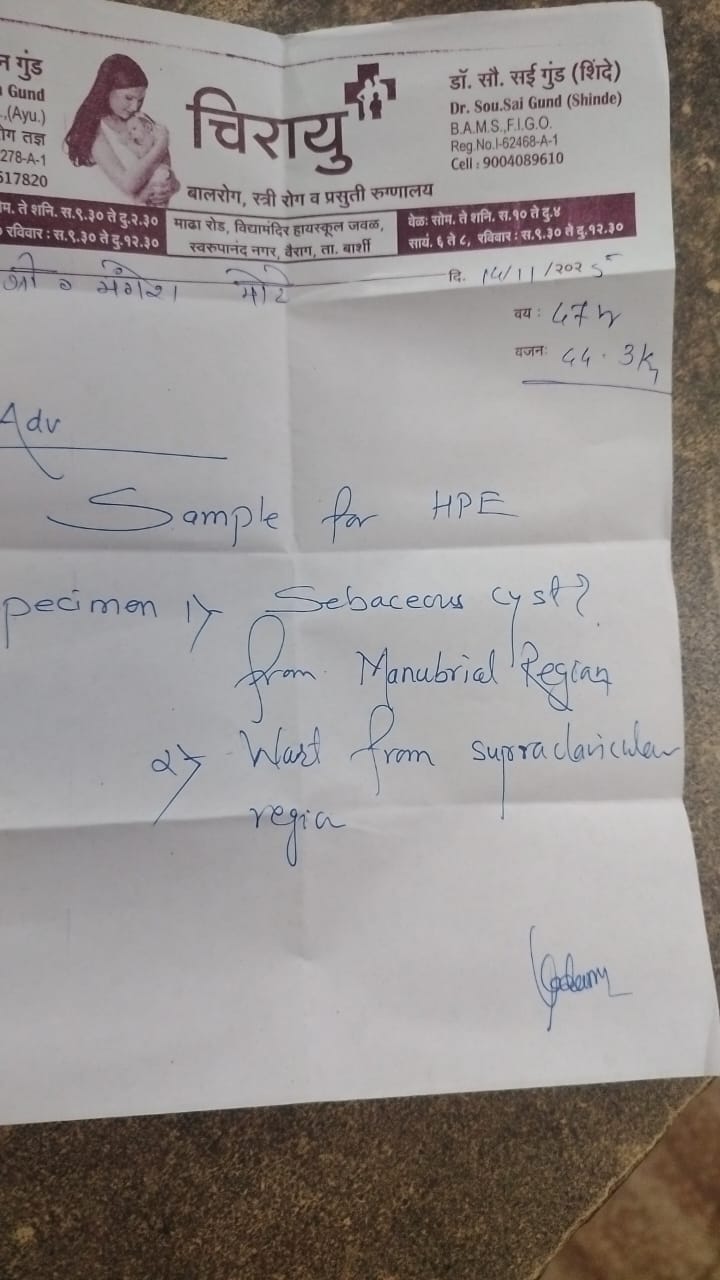 न गुंड
Gund
.,(Ayu.)
ोग तज्ञ
278-A-1
517820
चिरायु
बालरोग, स्त्री रोग व प्रसुती रुग्णालय
डॉ. सौ. सई गुंड (शिंदे)
Dr. Sou.Sai Gund (Shinde)
B.A.M.S.,F.I.G.O.
Reg.No.I-62468-A-1
Cell : 9004089610
ोम. ते शनि. स.९.३० ते दु.२.३०
रविवार : स.९.३० ते दु.१२.३०
माढा रोड, विद्यामंदिर हायस्कूल जवळ,
स्वरुपानंद नगर, वैराग, ता. बार्शी
वेळ: सोम. ते शनि. स.१० ते दु.४
सायं. ६ ते ८, रविवार : स.९.३० ते दु.१२.३०
मंगेश मोटे
दि. 14/11/2025
वय :
वजन: 3kg
Adv
Sample for HPE
pecimen 1) Sebaceous cyst?
from Manubrial Region
2) Wart from supraclavicular
region